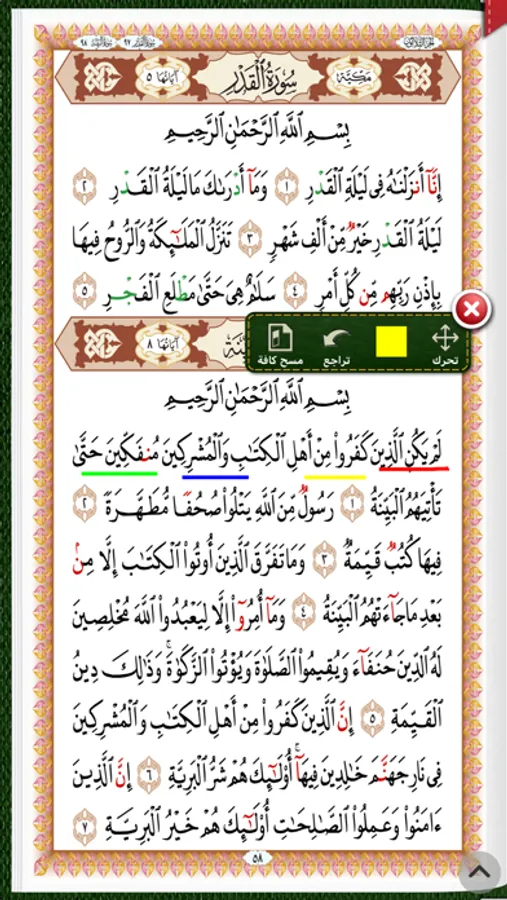 سورة القدر ٩٧ سورة البينة ٩٨
الجزء الثلاثون
مكية سُورَةُ الْقَدْرِ آياتها ٥
بِسْمِ اللَّهِ الرَّحْمَٰنِ الرَّحِيمِ
إِنَّآ أَنزَلْنَٰهُ فِى لَيْلَةِ الْقَدْرِ ١ وَمَآ أَدْرَىٰكَ مَا لَيْلَةُ الْقَدْرِ ٢
لَيْلَةُ الْقَدْرِ خَيْرٌ مِّنْ أَلْفِ شَهْرٍ ٣ تَنَزَّلُ الْمَلَٰٓئِكَةُ وَالرُّوحُ فِيهَا
بِإِذْنِ رَبِّهِم مِّن كُلِّ أَمْرٍ ٤ سَلَٰمٌ هِىَ حَتَّىٰ مَطْلَعِ الْفَجْرِ ٥
آياتها ٨
تحرك
تراجع
مسح كافة
بِسْمِ اللَّهِ الرَّحْمَٰنِ الرَّحِيمِ
لَمْ يَكُنِ الَّذِينَ كَفَرُوا۟ مِنْ أَهْلِ الْكِتَٰبِ وَالْمُشْرِكِينَ مُنفَكِّينَ حَتَّىٰ
تَأْتِيَهُمُ الْبَيِّنَةُ ١ رَسُولٌ مِّنَ اللَّهِ يَتْلُوا۟ صُحُفًا مُّطَهَّرَةً ٢
فِيهَا كُتُبٌ قَيِّمَةٌ ٣ وَمَا تَفَرَّقَ الَّذِينَ أُوتُوا۟ الْكِتَٰبَ إِلَّا مِنۢ
بَعْدِ مَا جَآءَتْهُمُ الْبَيِّنَةُ ٤ وَمَآ أُمِرُوٓا۟ إِلَّا لِيَعْبُدُوا۟ اللَّهَ مُخْلِصِينَ
لَهُ الدِّينَ حُنَفَآءَ وَيُقِيمُوا۟ الصَّلَوٰةَ وَيُؤْتُوا۟ الزَّكَوٰةَ ۚ وَذَٰلِكَ دِينُ
الْقَيِّمَةِ ٥ إِنَّ الَّذِينَ كَفَرُوا۟ مِنْ أَهْلِ الْكِتَٰبِ وَالْمُشْرِكِينَ
فِى نَارِ جَهَنَّمَ خَٰلِدِينَ فِيهَآ ۚ أُو۟لَٰٓئِكَ هُمْ شَرُّ الْبَرِيَّةِ ٦ إِنَّ الَّذِينَ
ءَامَنُوا۟ وَعَمِلُوا۟ الصَّٰلِحَٰتِ أُو۟لَٰٓئِكَ هُمْ خَيْرُ الْبَرِيَّةِ ٧
٥٨